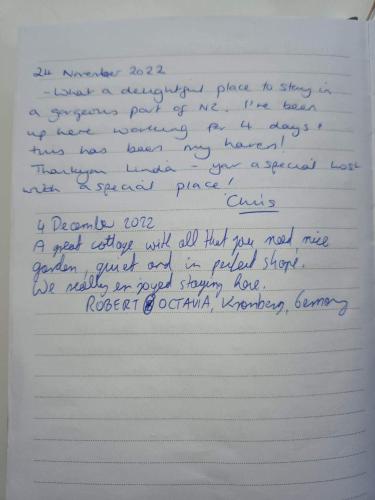 24 November 2022
- What a delightful place to stay in
a gorgeous part of NZ. I've been
up here working for 4 days &
this has been my haven!
Thankyou Linda - your a special host
with a special place!
Chris
4 December 2022
A great cottage with all that you need, nice
garden, quiet and in perfect shape.
We really enjoyed staying here.
ROBERT & OCTAVIA, Kronberg, Germany